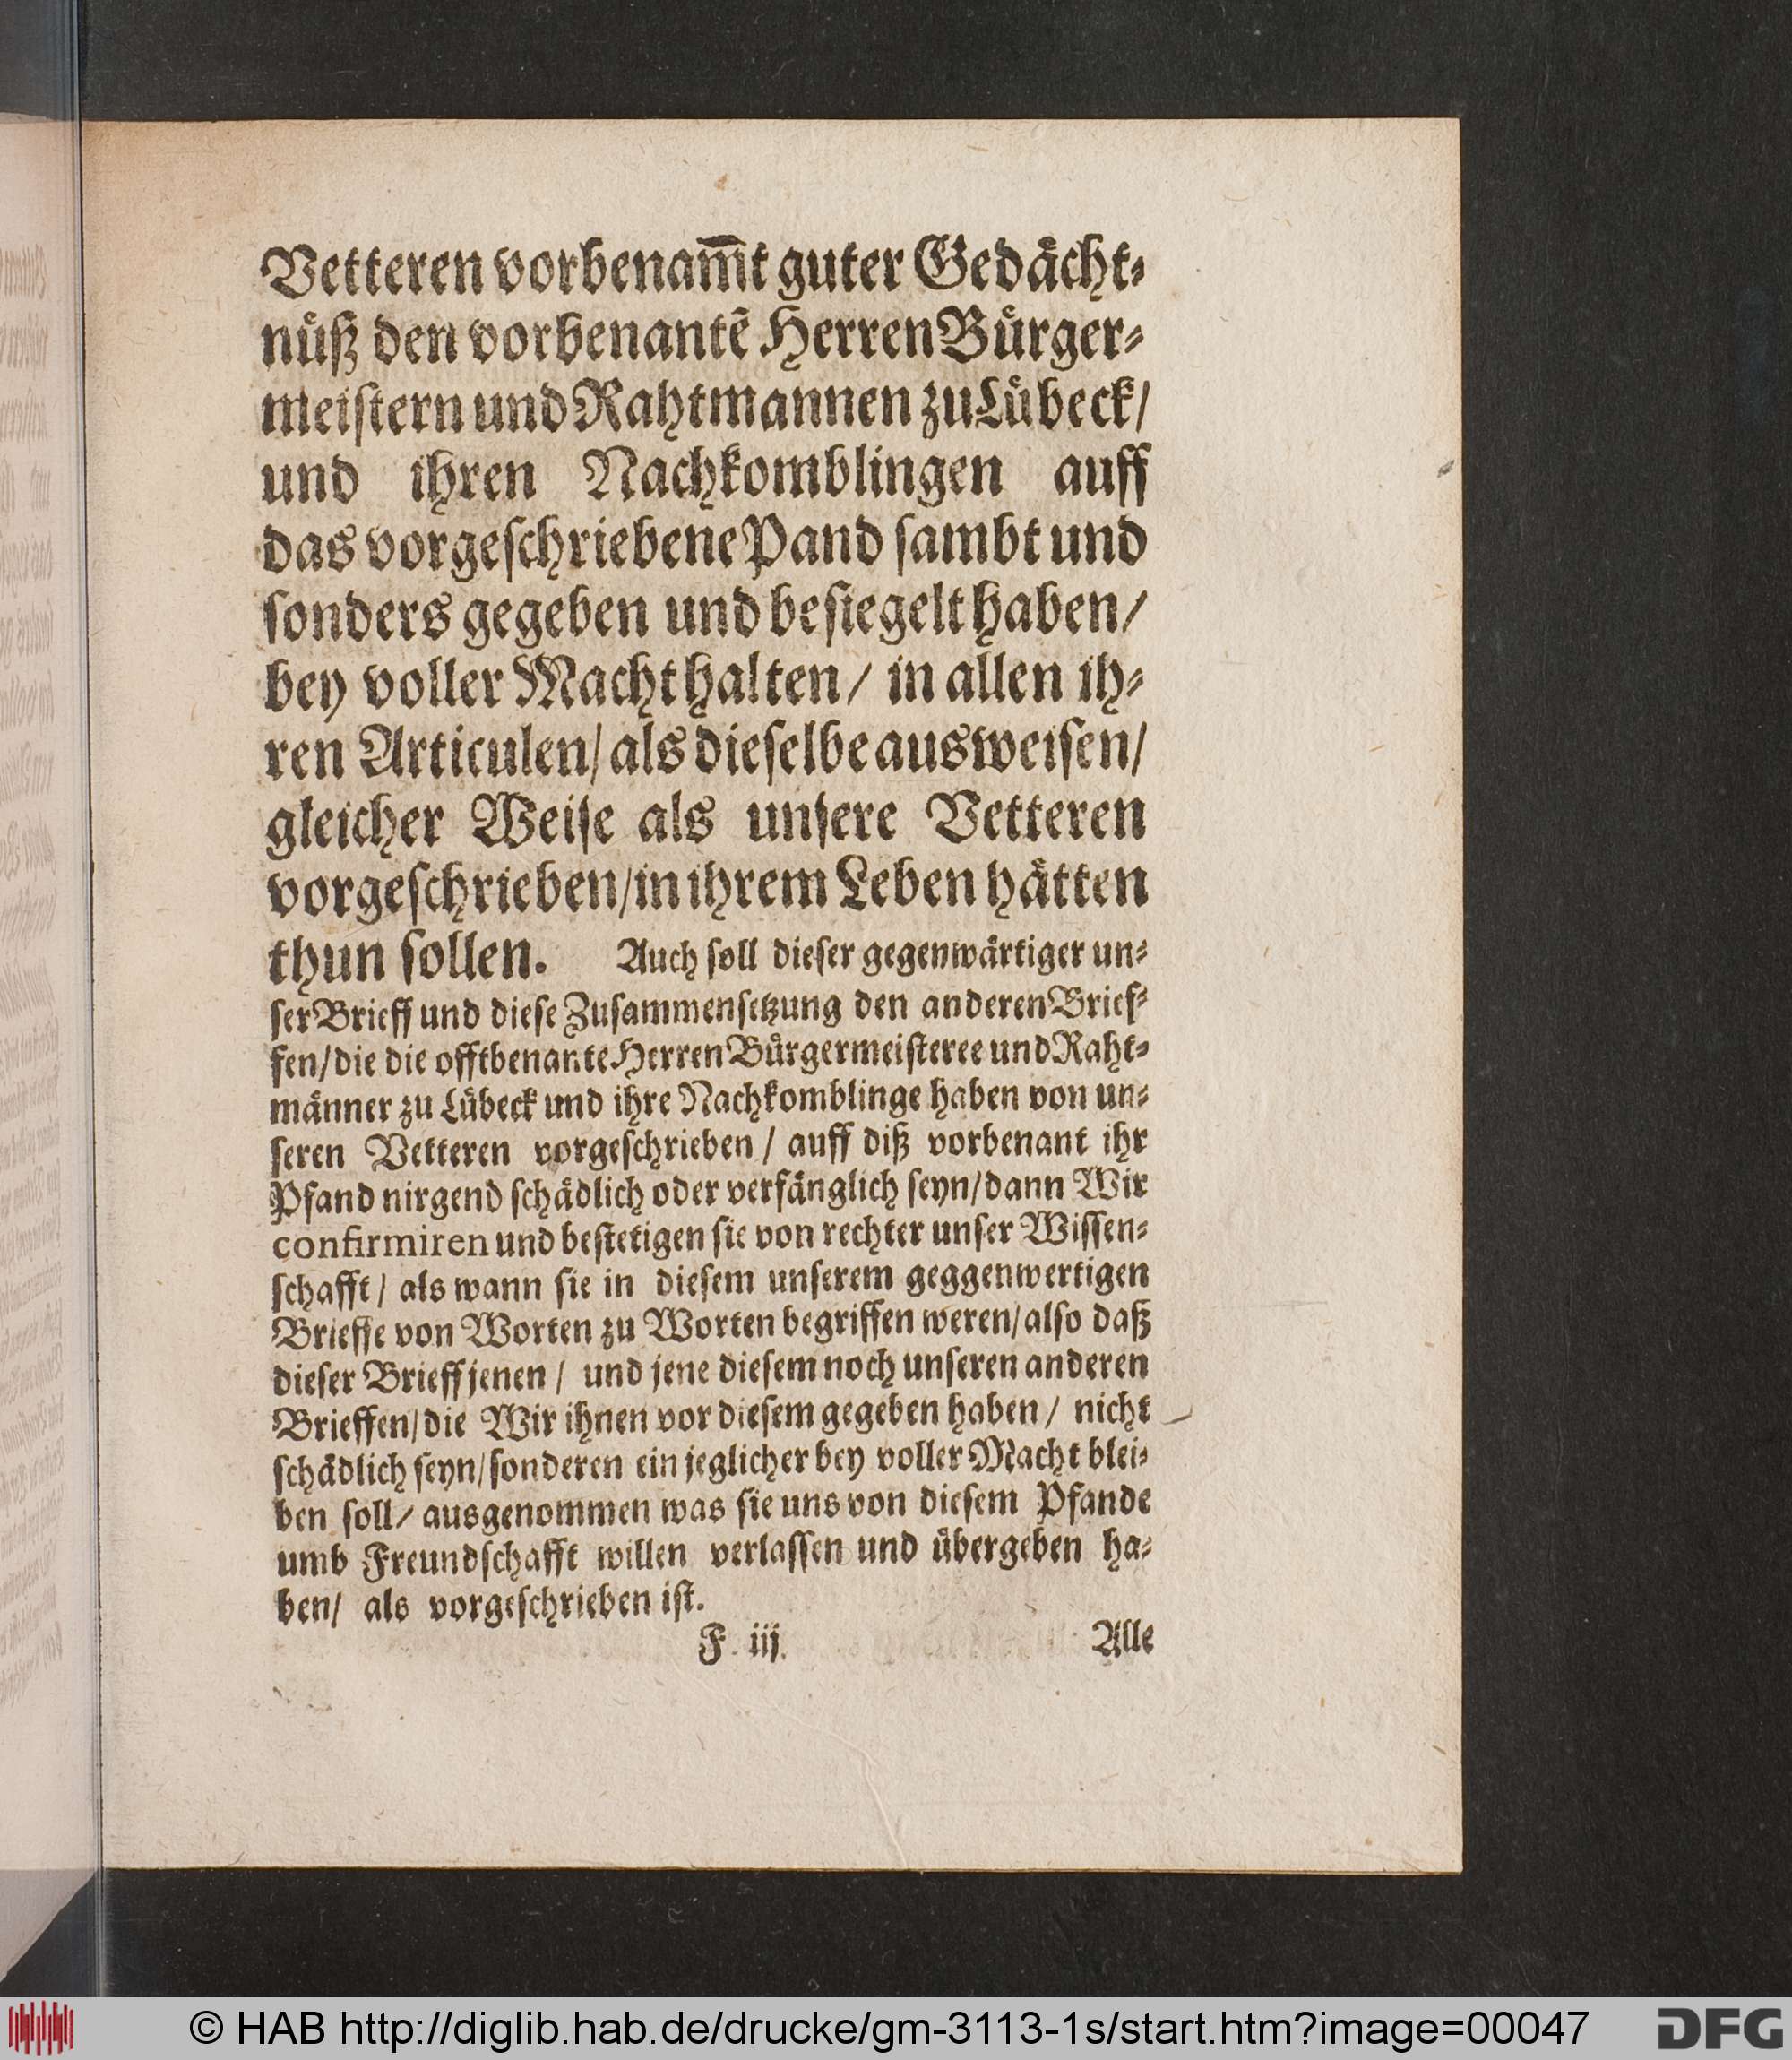 Vetteren vorbenam̄t guter Gedaͤcht⸗
nuͤß den vorbenantẽ Herren Buͤrger⸗
meiſtern und Rahtmannen zu Luͤbeck/
und ihren Nachkomblingen auff
das vorgeſchriebene Pand ſambt und
ſonders gegeben und beſiegelt haben/
bey voller Macht halten/ in allen ih⸗
ren Articulen/ als dieſelbe ausweiſen/
gleicher Weiſe als unſere Vetteren
vorgeſchrieben/ in ihrem Leben haͤtten
thun ſollen. Auch ſoll dieſer gegenwaͤrtiger un⸗
ſer Brieff und dieſe Zuſammenſetzung den anderen Brief⸗
fen/ die die offtbenante Herren Buͤrgermeiſteree und Raht⸗
maͤnner zu Luͤbeck und ihre Nachkomblinge haben von un⸗
ſeren Vetteren vorgeſchrieben / auff diß vorbenant ihr
Pfand nirgend ſchaͤdlich oder verfaͤnglich ſeyn/ dann Wir
confirmiren und beſtetigen ſie von rechter unſer Wiſſen⸗
ſchafft / als wann ſie in dieſem unſerem geggenwertigen
Brieffe von Worten zu Worten begriffen weren/ alſo daß
dieſer Brieff jenen / und jene dieſem noch unſeren anderen
Brieffen/ die Wir ihnen vor dieſem gegeben haben / nicht
ſchaͤdlich ſeyn/ ſonderen ein jeglicher bey voller Macht blei⸗
ben ſoll/ ausgenommen was ſie uns von dieſem Pfande
umb Freundſchafft willen verlaſſen und uͤbergeben ha⸗
ben/ als vorgeſchrieben iſt.
F iij. Alle
© HAB http://diglib.hab.de/drucke/gm-3113-1s/start.htm?image=00047
DFG